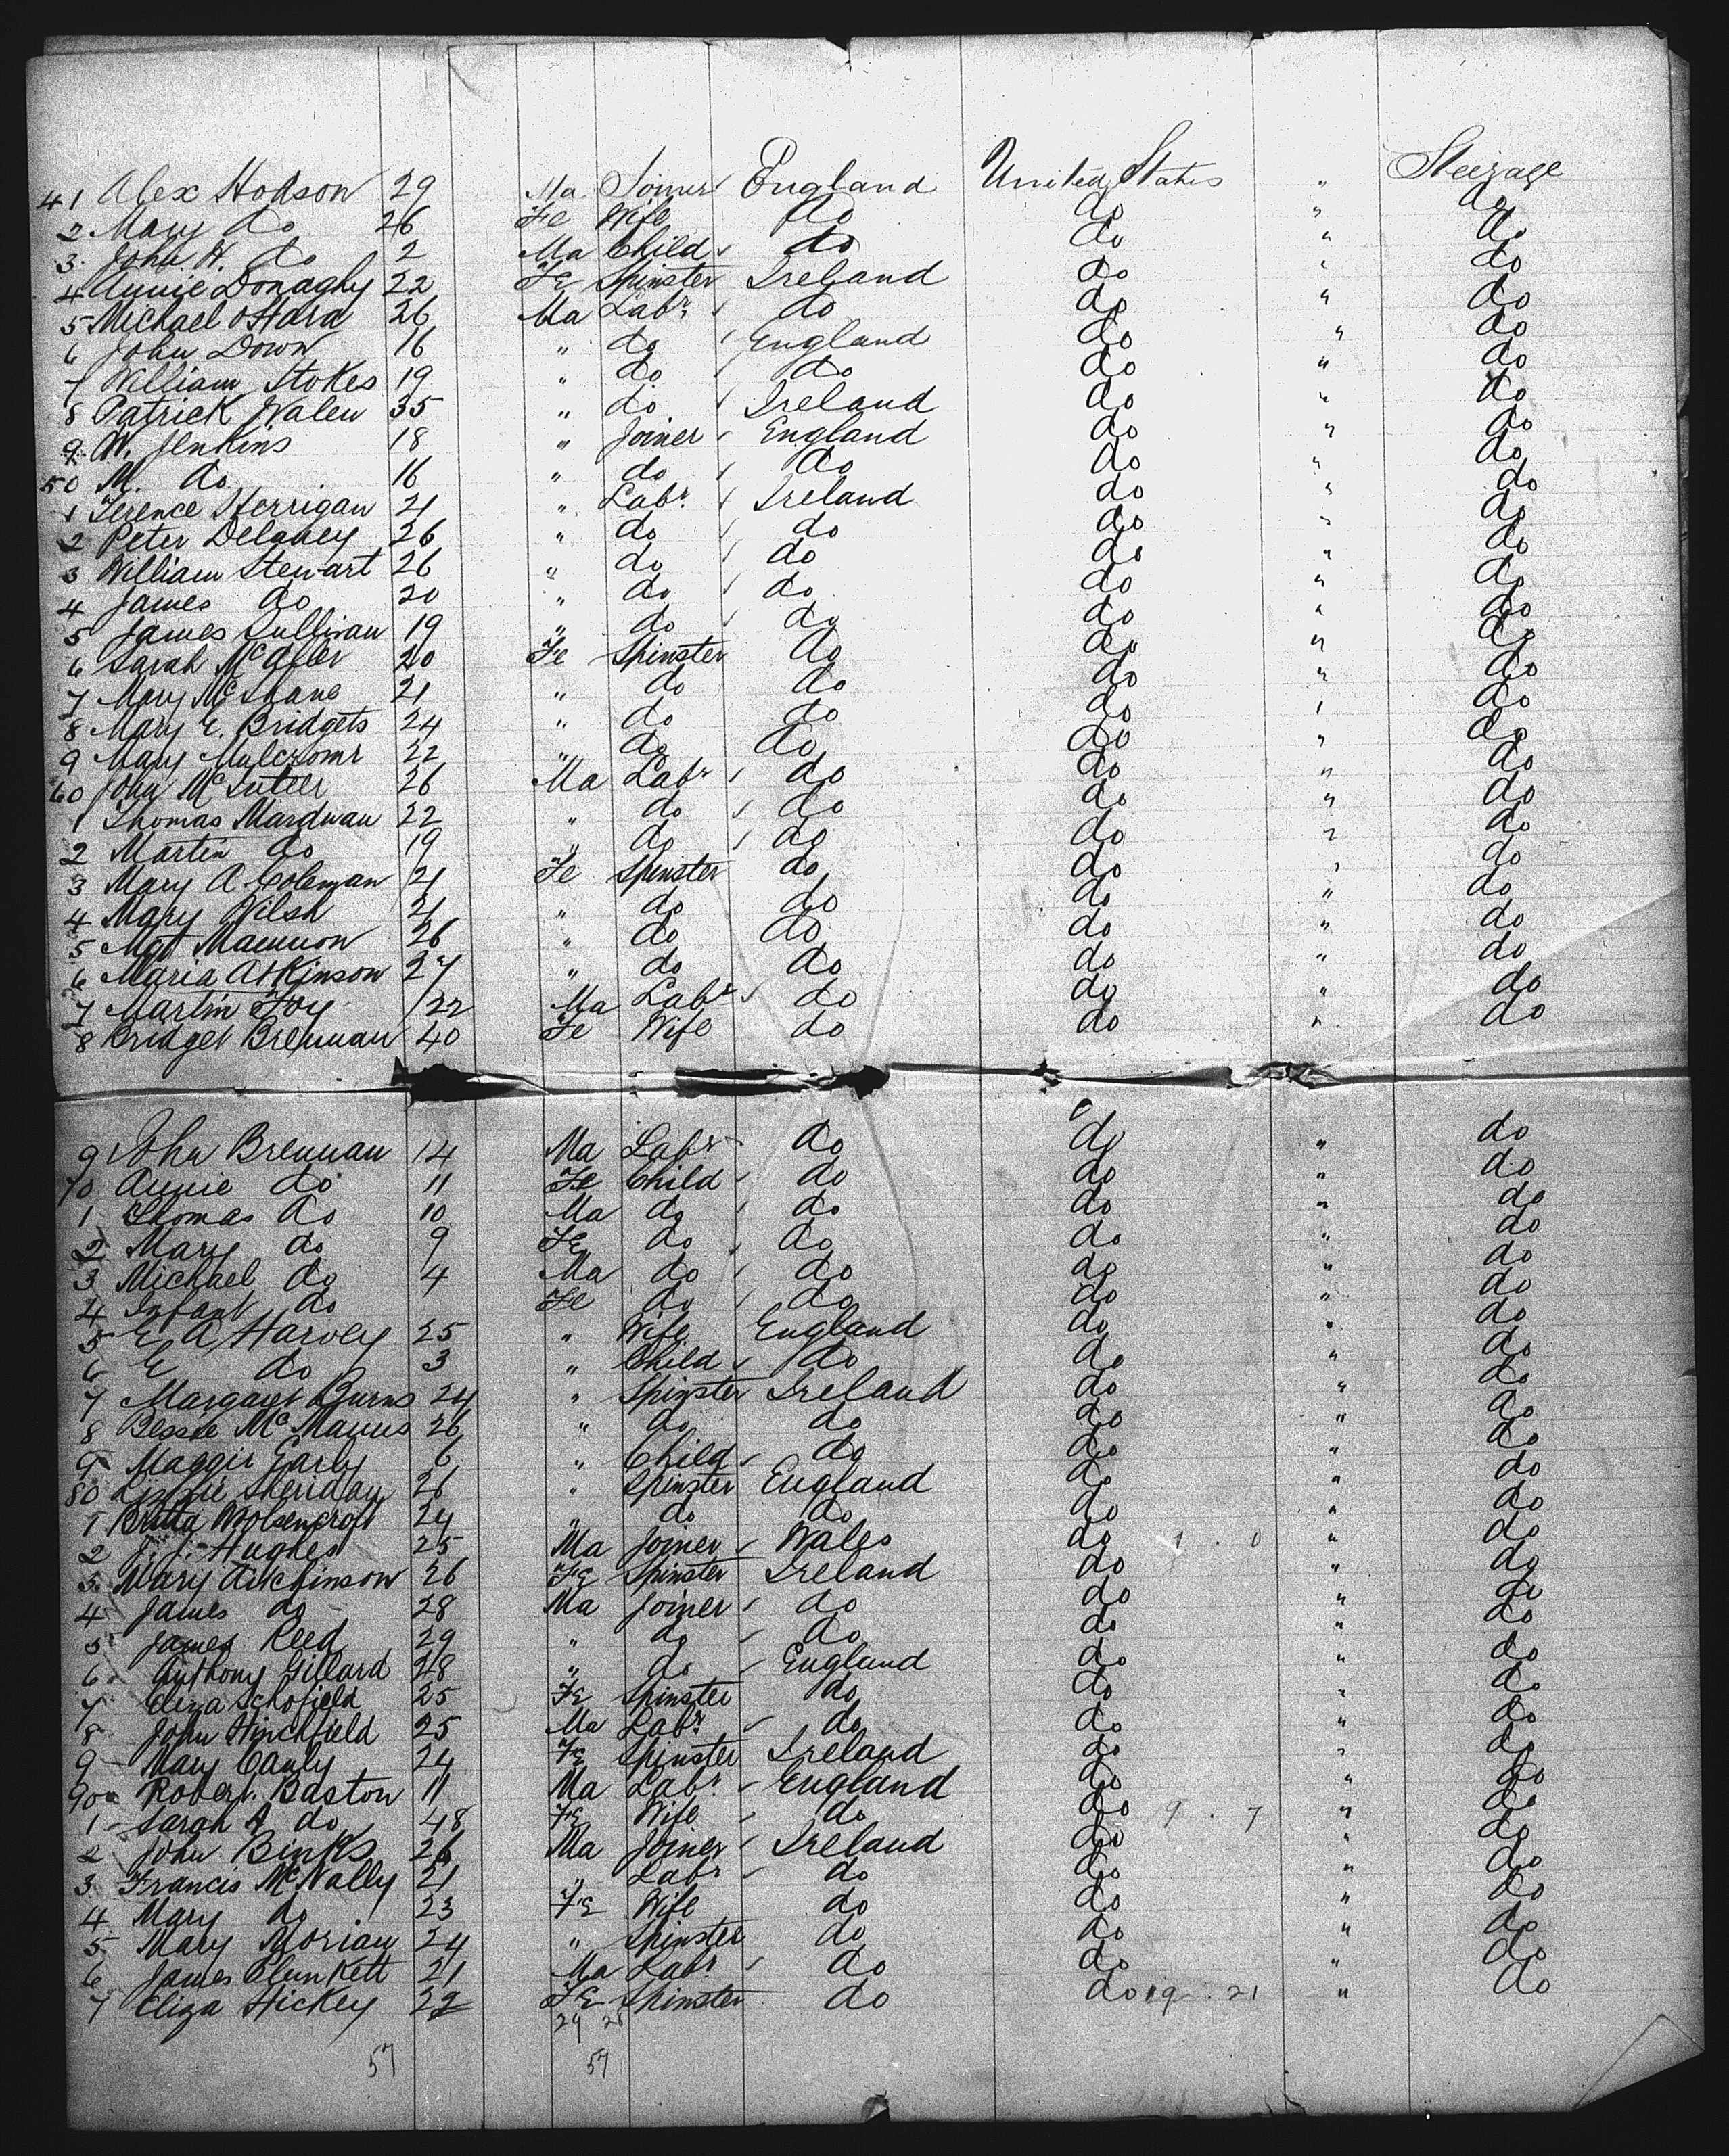 41 Alex Hodson 29 Ma Joiner England United States " Steerage
2 Mary do 26 Fe Wife do do " do
3 John H. do 2 Ma Child do do " do
4 Annie Donaghy 22 Fe Spinster Ireland do " do
5 Michael O'Hara 26 Ma Labr do do " do
6 John Down 16 " do England do " do
7 William Stokes 19 " do do do " do
8 Patrick Walen 35 " do Ireland do " do
9 W. Jenkins 18 " Joiner England do " do
50 M. do 16 " do do do " do
1 Terence Herrigan 21 " Labr Ireland do " do
2 Peter Delaney 26 " do do do " do
3 William Stewart 26 " do do do " do
4 James do 20 " do do do " do
5 James Sullivan 19 " do do do " do
6 Sarah 20 Fe Spinster do do " do
7 Mary McShane 21 " do do do " do
8 Mary E. Bridgets 24 " do do do " do
9 Mary 22 " do do do " do
60 John 26 Ma Labr do do " do
1 Thomas Mardwau 22 " do do do " do
2 Martin do 19 " do do do " do
3 Mary A Coleman 21 Fe Spinster do do " do
4 Mary Wilsh 21 " do do do " do
5 Mgt 26 " do do do " do
6 Maria Atkinson 27 " do do do " do
7 Martin Foy 22 Ma Labr do do " do
8 Bridget Brennan 40 Fe Wife do do " do
9 John Brennan 14 Ma Labr do do " do
70 Annie do 11 Fe Child do do " do
1 Thomas do 10 Ma do do do " do
2 Mary do 9 Fe do do do " do
3 Michael do 4 Ma do do do " do
4 Infant do Fe do do do " do
5 E A Harvey 25 " Wife England do " do
6 E do 3 " Child do do " do
7 Margaret Burns 24 " Spinster Ireland do " do
8 Bessie McManus 26 " do do do " do
9 Maggie Early 6 " Child do do " do
80 Lizzie Sheridan 26 " Spinster England do " do
1 Britta Wolsencroft 24 " do do do " do
2 J. J. Hughes 25 Ma Joiner Wales do 1 . 0 " do
3 Mary Aitchinson 26 Fe Spinster Ireland do " do
4 James do 28 Ma Joiner do do " do
5 James Reed 29 " do do do " do
6 Anthony Gillard 28 " do England do " do
7 Eliza Schofield 25 Fe Spinster do do " do
8 John Hinchfield 25 Ma Labr do do " do
9 Mary Canly 24 Fe Spinster Ireland do " do
90 Robert Baston 11 Ma Labr England do " do
1 Sarah A do 48 Fe Wife do do 9 . 7 " do
2 John Binks 26 Ma Joiner Ireland do " do
3 Francis McNally 21 " Labr do do " do
4 Mary do 23 Fe Wife do do " do
5 Mary Morian 24 " Spinster do do " do
6 James Clunkett 21 Ma Labr do do " do
7 Eliza Hickey 22 Fe Spinster do do 19 . 21 " do
29 28
57 57